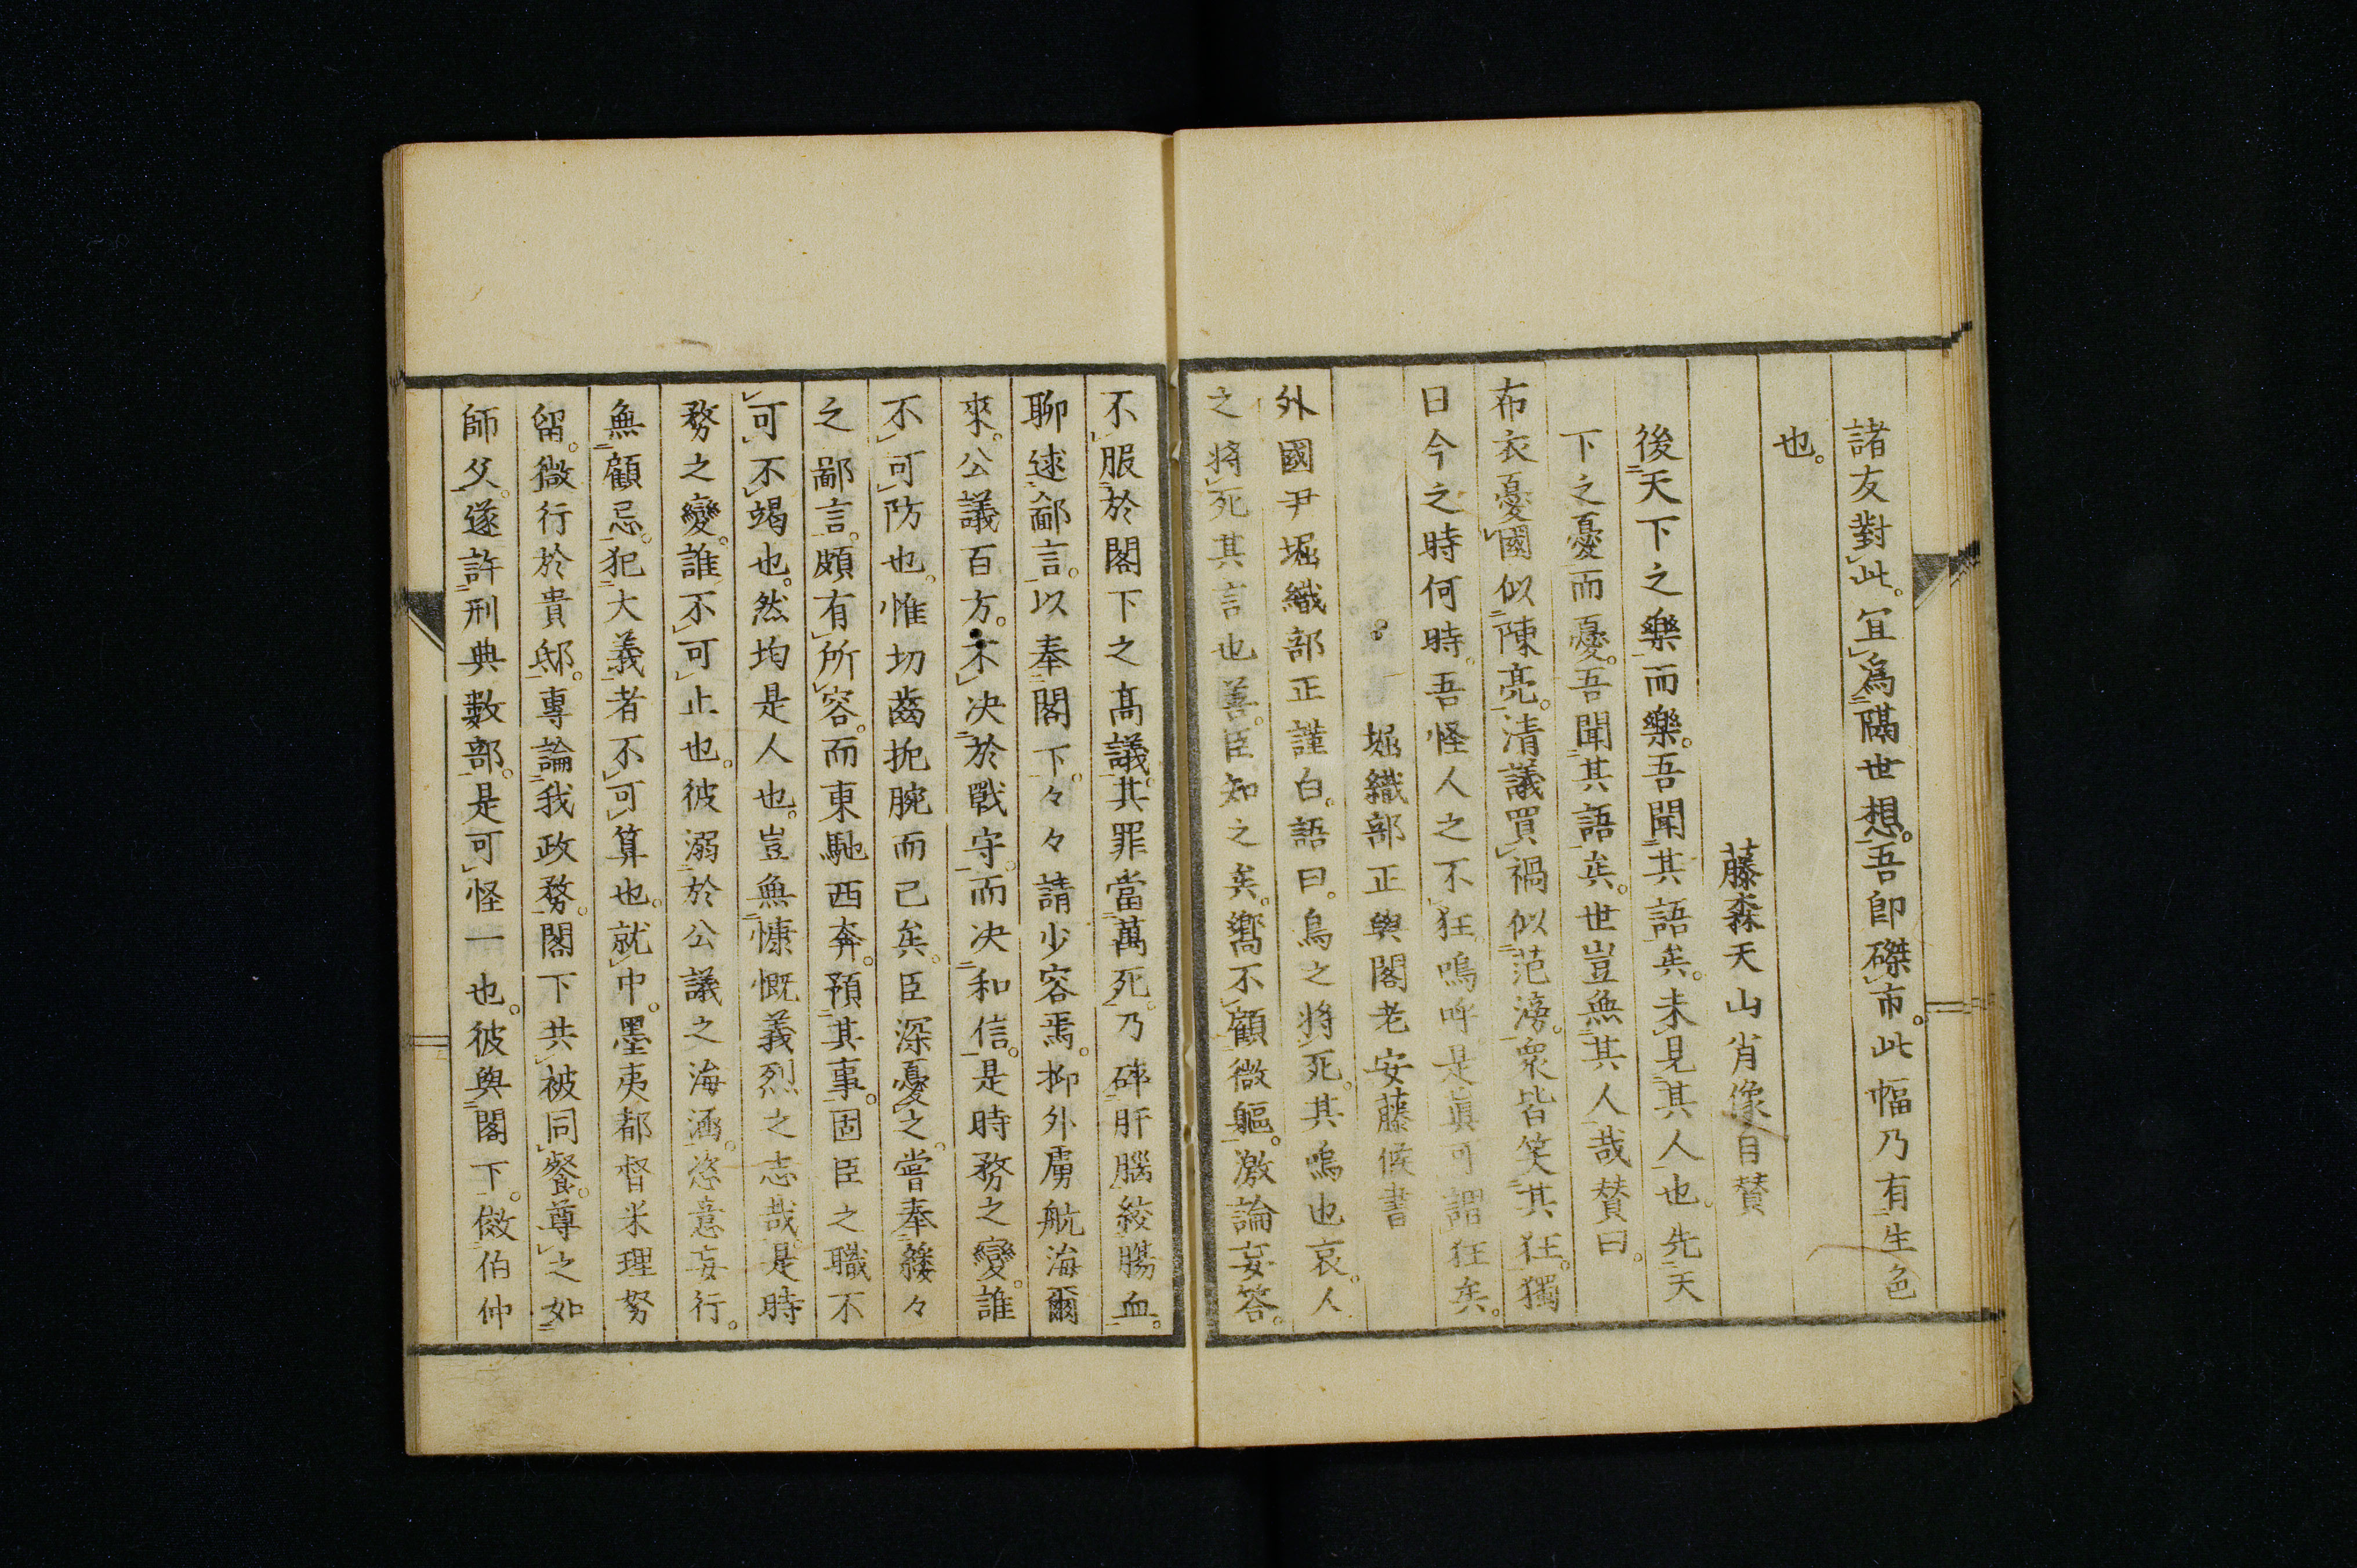 諸友對此。宜爲隔世想。吾卽磔市。此幅乃有生色
也。
藤森天山肖像自賛
後天下之樂而樂。吾聞其語矣。未見其人也。先天
下之憂而憂。吾聞其語矣。世豈無其人哉賛曰。
布衣憂國似陳亮。清議買禍似范滂。衆皆笑其狂。獨
曰今之時何時。吾怪人之不狂。嗚呼是眞可謂狂矣。
堀織部正與閣老安藤候書
外國尹堀織部正謹白。語曰。鳥之將死。其鳴也哀。人
之將死其言也善。臣知之矣。嚮不顧微軀。激論妄答。
不服於閣下之高議。其罪當萬死。乃碎肝腦絞腸血。
聊逑鄙言。以奉閣下。々々請少容焉。抑外虜航海爾
來。公議百方。不決於戰守。而决和信。是時務之變。誰
不可防也。惟切齒扼腕而已矣。臣深憂之。嘗奉縷々
之鄙言。頗有所容。而東馳西奔。預其事。固臣之職不
可不竭也。然均是人也。豈無慷慨義烈之志哉。是時
務之變。誰不可止也。彼溺於公議之海涵。恣意妄行。
無顧忌。犯大義者不可算也。就中。墨夷都督米理努
留。微行於貴邸。專論我政務。閣下共被同餐。尊之如
師父。遂許刑典數部。是可怪一也。彼與閣下。傚伯仲